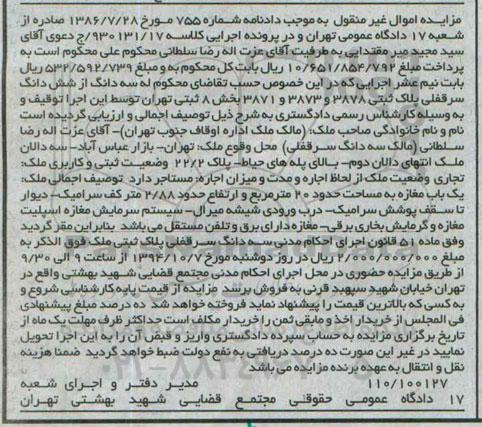 مزایده اموال غیر منقول به موجب دادنامه شماره ۷۵۵ مورخ ۱۳۸۶/۷/۲۸ صادره از
شعبه ۱۷ دادگاه عمومی تهران و در پرونده اجرایی کلاسه ۹۳۰۱۳۱/۱۷/ج دعوی آقای
سید مجید میر مقتدایی به طرفیت آقای عزت اله رضا سلطانی محکوم علی محکوم است به
پرداخت مبلغ ۱۰/۶۵۱/۸۵۴/۷۹۲ ریال بابت کل محکوم به و مبلغ ۵۳۲/۵۹۲/۷۳۹ ریال
بابت نیم عشر اجرایی که در این خصوص حسب تقاضای محکوم له سه دانگ از شش دانگ
سرقفلی پلاک ثبتی ۳۸۷۸ و ۳۸۷۳ و ۳۸۷۱ بخش ۸ ثبتی تهران توسط این اجرا توقیف و
به وسیله کارشناس رسمی دادگستری به شرح ذیل توصیف اجمالی و ارزیابی گردیده است
نام و نام خانوادگی صاحب ملک: (مالک ملک اداره اوقاف جنوب تهران)- آقای عزت اله رضا
سلطانی (مالک سه دانگ سرقفلی) محل وقوع ملک: تهران- بازار عباس آباد- سه دالان
ملک انتهای دالان دوم- بالای پله های حیاط- پلاک ۲۲/۲ وضعیت ثبتی و کاربری ملک:
تجاری وضعیت ملک از لحاظ اجاره و مدت و میزان اجاره: مستاجر دارد توصیف اجمالی ملک:
یک باب مغازه به مساحت حدود ۲۰ مترمربع و ارتفاع حدود ۲/۸۸ متر کف سرامیک- دیوار
تا سقف پوشش سرامیک- درب ورودی شیشه میرال- سیستم سرمایش مغازه اسپلیت
مغازه و گرمایش بخاری برقی- مغازه دارای برق و تلفن مستقل می باشد بنابراین مقرر گردید
وفق ماده ۵۱ قانون اجرای احکام مدنی سه دانگ سرقفلی پلاک ثبتی ملک فوق الذکر به
مبلغ ۲/۰۰۰/۰۰۰/۰۰۰ ریال در روز دوشنبه مورخ ۱۳۹۴/۱۰/۷ از ساعت ۹ الی ۹/۳۰
از طریق مزایده حضوری در محل اجرای احکام مدنی مجتمع قضایی شهید بهشتی واقع در
تهران خیابان شهید سپهبد قرنی به فروش برسد مزایده از قیمت پایه کارشناسی شروع و
به کسی که بالاترین قیمت را پیشنهاد نماید فروخته خواهد شد ده درصد مبلغ پیشنهادی
فی المجلس از خریدار اخذ و مابقی ثمن را خریدار مکلف است حداکثر ظرف مهلت یک ماه از
تاریخ برگزاری مزایده به حساب سپرده دادگستری واریز و قبض آن را به این اجرا تحویل
نمایید در غیر این صورت ده درصد دریافتی به نفع دولت ضبط خواهد گردید ضمنا هزینه
نقل و انتقال به عهده برنده مزایده می باشد
۱۱۰/۱۰۰۱۲۷ مدیر دفتر و اجرای شعبه
۱۷ دادگاه عمومی حقوقی مجتمع قضایی شهید بهشتی تهران